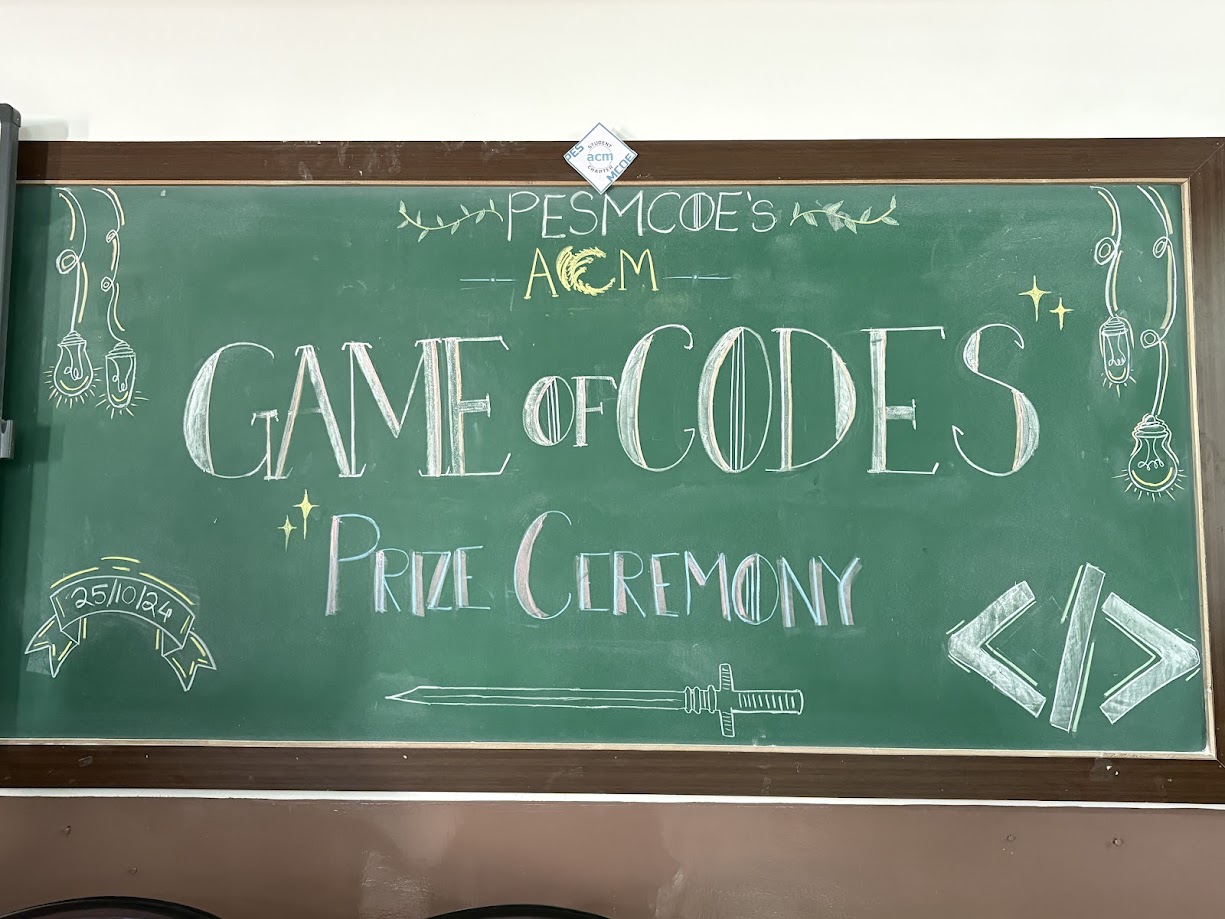 PES
STUDENT
acm
CHAPTER
MCOE
PESMCOE's
ACM
GAME OF CODES
PRIZE CEREMONY
25/10/24
</>